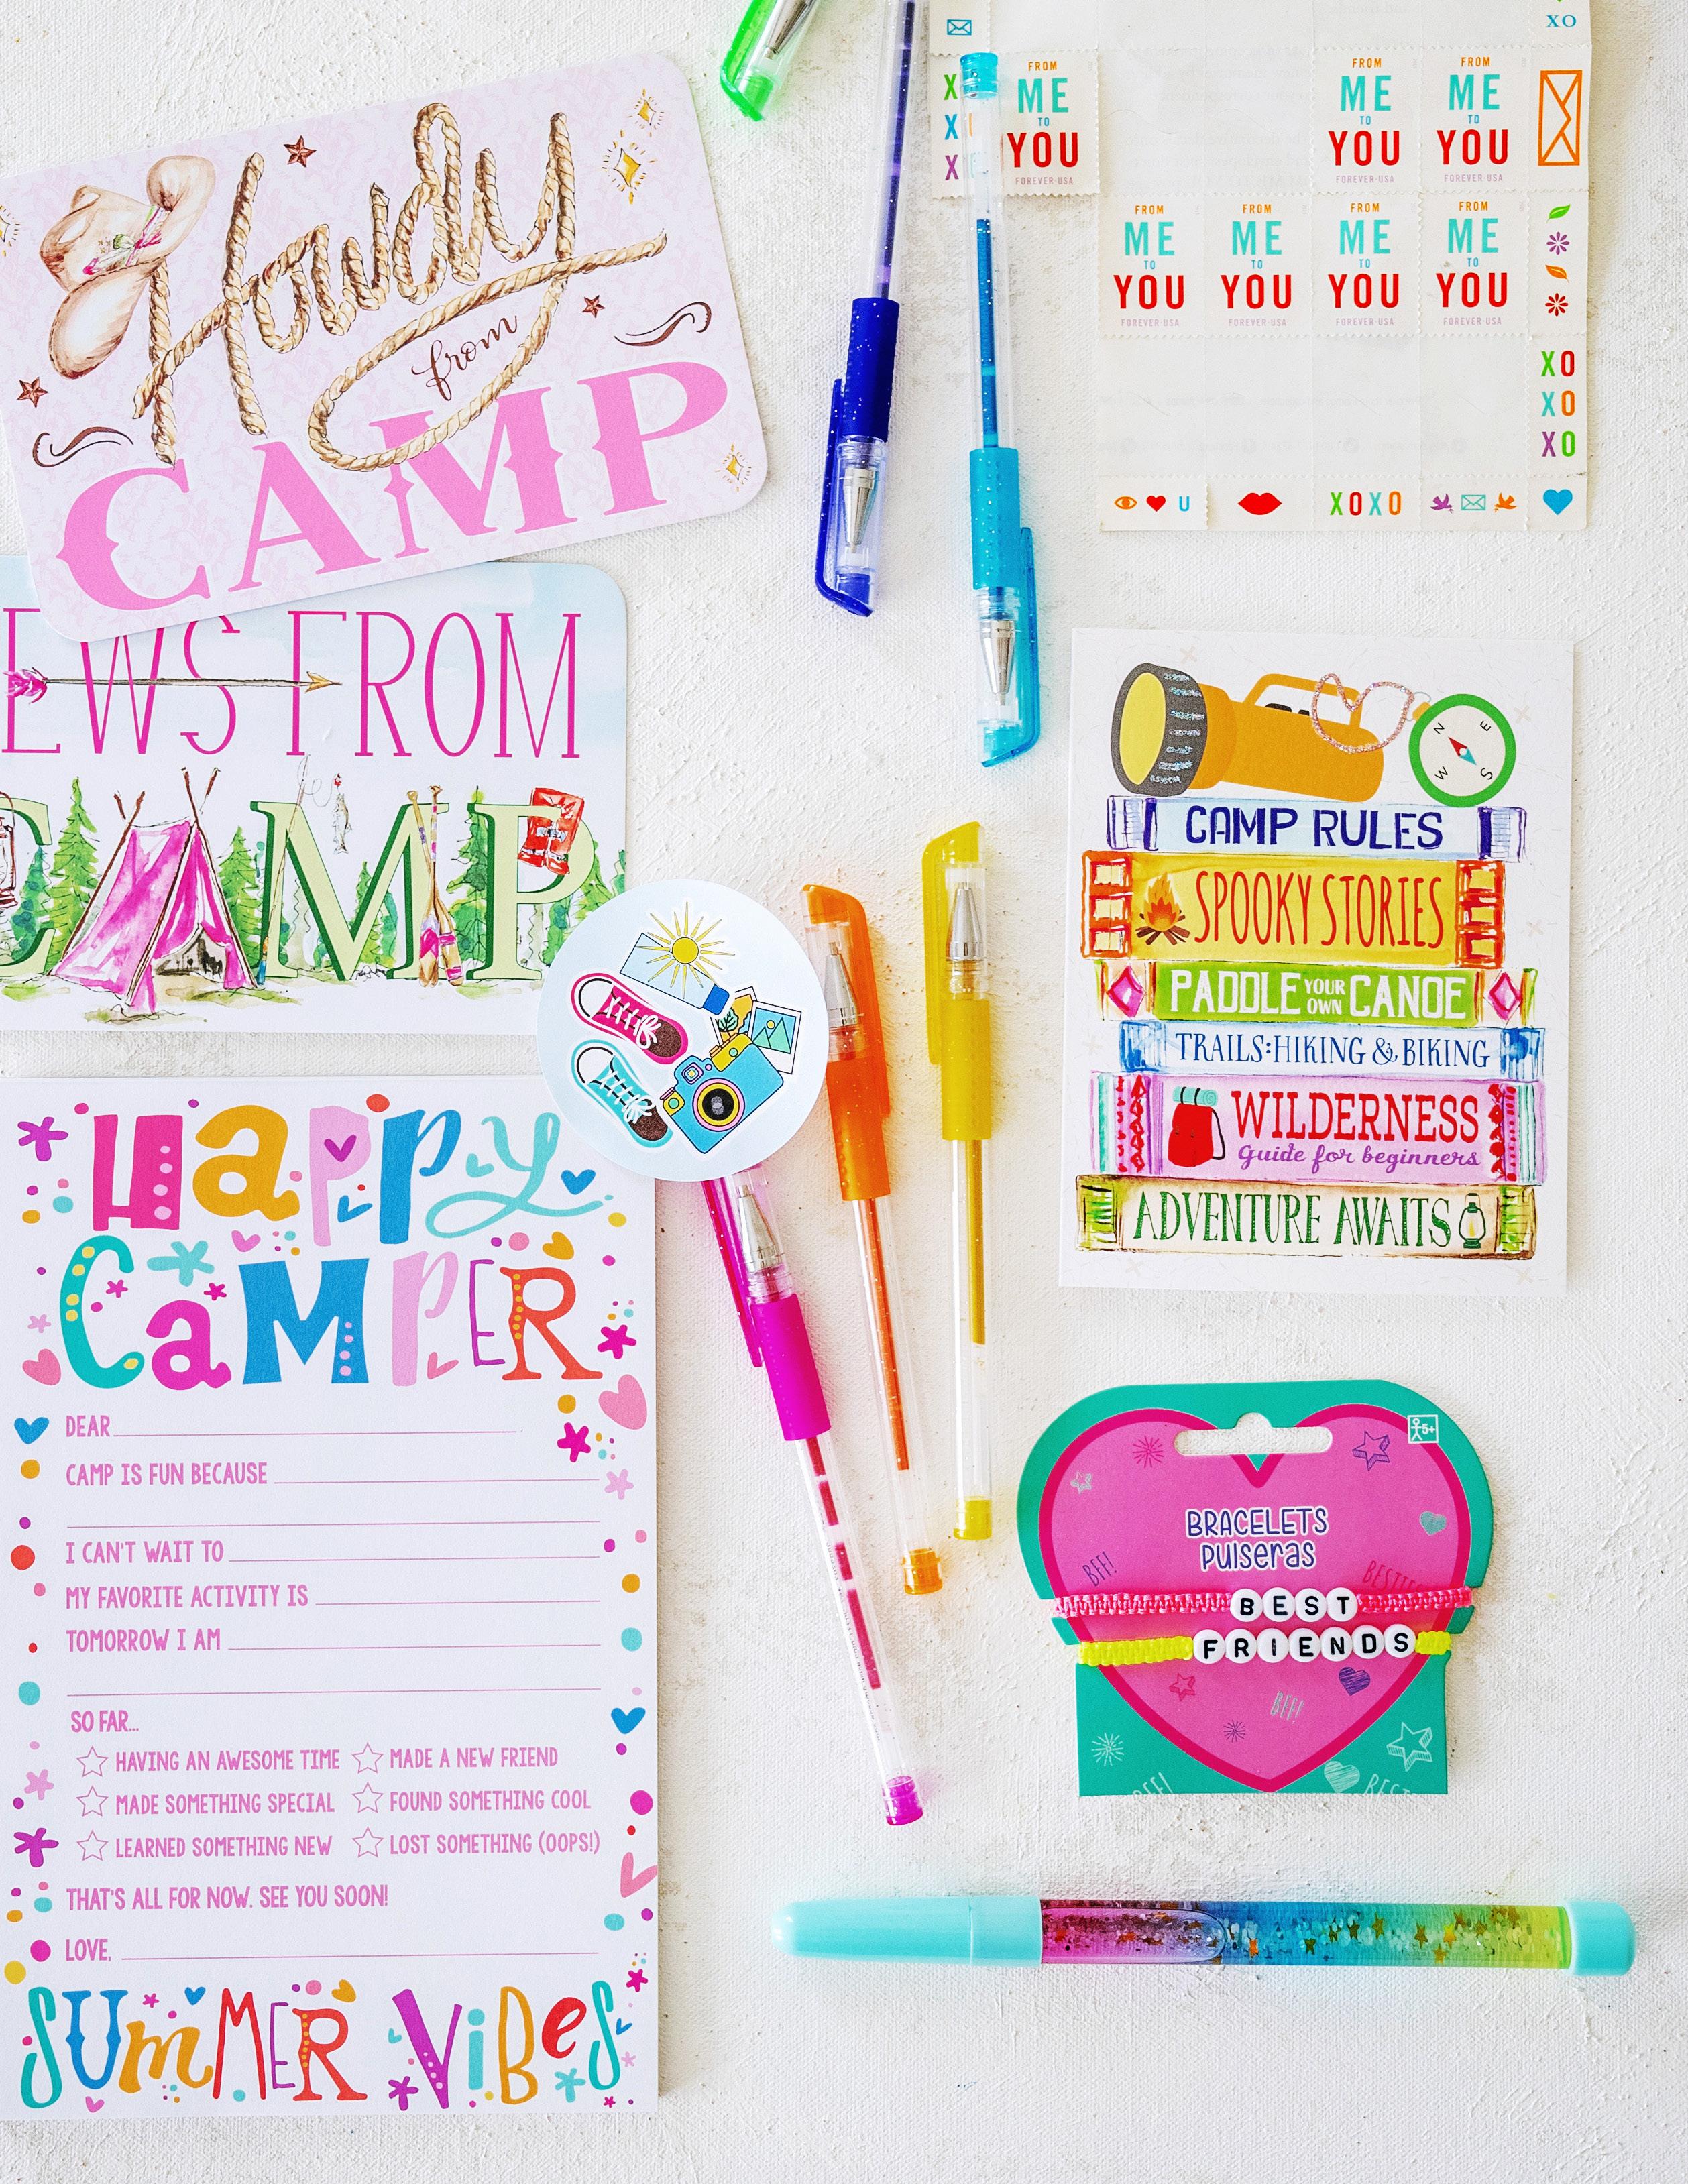 Howdy
from
CAMP
EWS FROM
CAMP
HAPPY
CAMPER
DEAR
CAMP IS FUN BECAUSE
I CAN'T WAIT TO
MY FAVORITE ACTIVITY IS
TOMORROW I AM
SO FAR...
HAVING AN AWESOME TIME MADE A NEW FRIEND
MADE SOMETHING SPECIAL FOUND SOMETHING COOL
LEARNED SOMETHING NEW LOST SOMETHING (OOPS!)
THAT'S ALL FOR NOW. SEE YOU SOON!
LOVE,
SUMMER VIBES
XO
X
X
X
FROM
ME
TO
YOU
FOREVER·USA
FROM
ME
TO
YOU
FOREVER·USA
FROM
ME
TO
YOU
FOREVER·USA
FROM
ME
TO
YOU
FOREVER·USA
FROM
ME
TO
YOU
FOREVER·USA
FROM
ME
TO
YOU
FOREVER·USA
FROM
ME
TO
YOU
FOREVER·USA
XO
XO
XO
U
XOXO
N
E
W
S
CAMP RULES
SPOOKY STORIES
PADDLE YOUR OWN CANOE
TRAILS: HIKING & BIKING
WILDERNESS
Guide for beginners
ADVENTURE AWAITS
5+
BRACELETS
Pulseras
BFF!
BEST
FRIENDS
BFF!